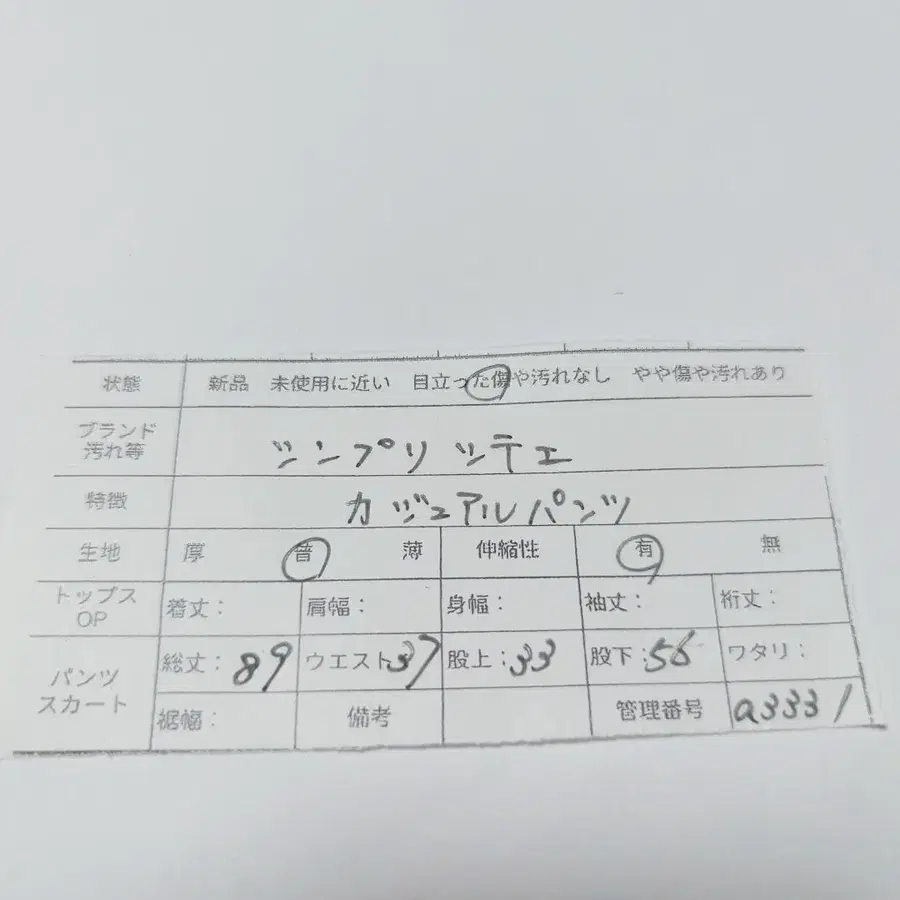 状態 新品 未使用に近い 目立った傷や汚れなし やや傷や汚れあり
ブランド
汚れ等 シンプリシテェ
特徴 カジュアルパンツ
生地 厚 普 薄 伸縮性 有 無
トップス
OP 着丈: 肩幅: 身幅: 袖丈: 裄丈:
パンツ
スカート 総丈:89 ウエスト:37 股上:33 股下:56 ワタリ:
裾幅: 備考 管理番号 a3331